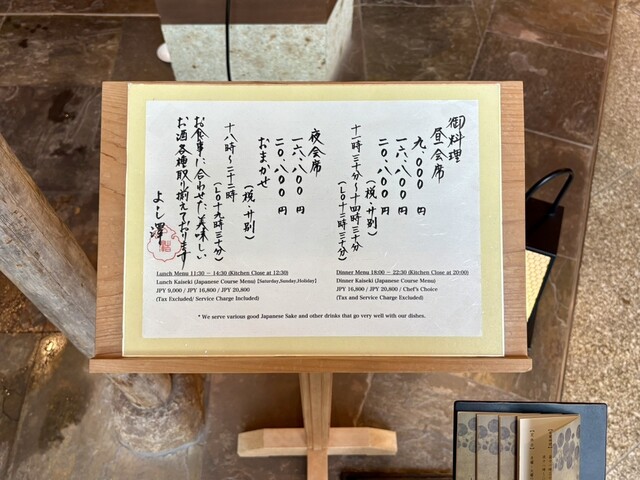 御料理
昼会席
九、000 円
一六、八00 円
二0、八00 円
(税・サ別)
十一時三十分〜十四時三十分
(LO十二時三十分)
夜会席
一六、八00 円
二0、八00 円
おまかせ
(税・サ別)
十八時〜二十二時
(LO十九時三十分)
お食事に合わせた、美味しい
お酒各種取り揃えております
よし澤
Lunch Menu 11:30 ~ 14:30 (Kitchen Close at 12:30)
Lunch Kaiseki (Japanese Course Menu) [Saturday,Sunday,Holiday]
JPY 9,000 / JPY 16,800 / JPY 20,800
(Tax Excluded/ Service Charge Included)
Dinner Menu 18:00 ~ 22:30 (Kitchen Close at 20:00)
Dinner Kaiseki (Japanese Course Menu)
JPY 16,800 / JPY 20,800 / Chef's Choice
(Tax and Service Charge Excluded)
* We serve various good Japanese Sake and other drinks that go very well with our dishes.